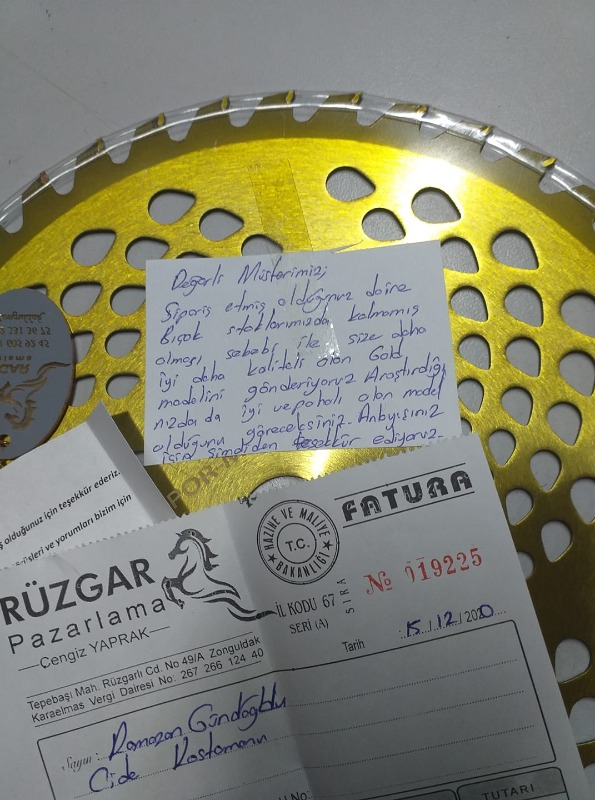 Değerli Müşterimiz;
Sipariş etmiş olduğunuz daire
Bıçak stoklarımızda kalmamış
olması sebebi ile size daha
iyi daha kaliteli olan Gold
modelini gönderiyoruz Araştırdığı
nızda da iyi ve pahalı olan model
olduğunu göreceksiniz. Anlayışınız
için şimdiden teşekkür ediyoruz.
olduğunuz için teşekkür ederiz.
ve yorumları bizim için
RÜZGAR
Pazarlama
Cengiz YAPRAK
Tepebaşı Mah. Rüzgarlı Cd. No 49/A Zonguldak
Karaelmas Vergi Dairesi No: 267 266 124 40
HAZİNE VE MALİYE
T.C.
BAKANLIĞI
FATURA
İL KODU 67
SERİ (A)
SIRA
No 019225
Tarih 15/12/2020
Sayın: Ramazan Gündoğdu
Cide Kastamonu
TUTARI